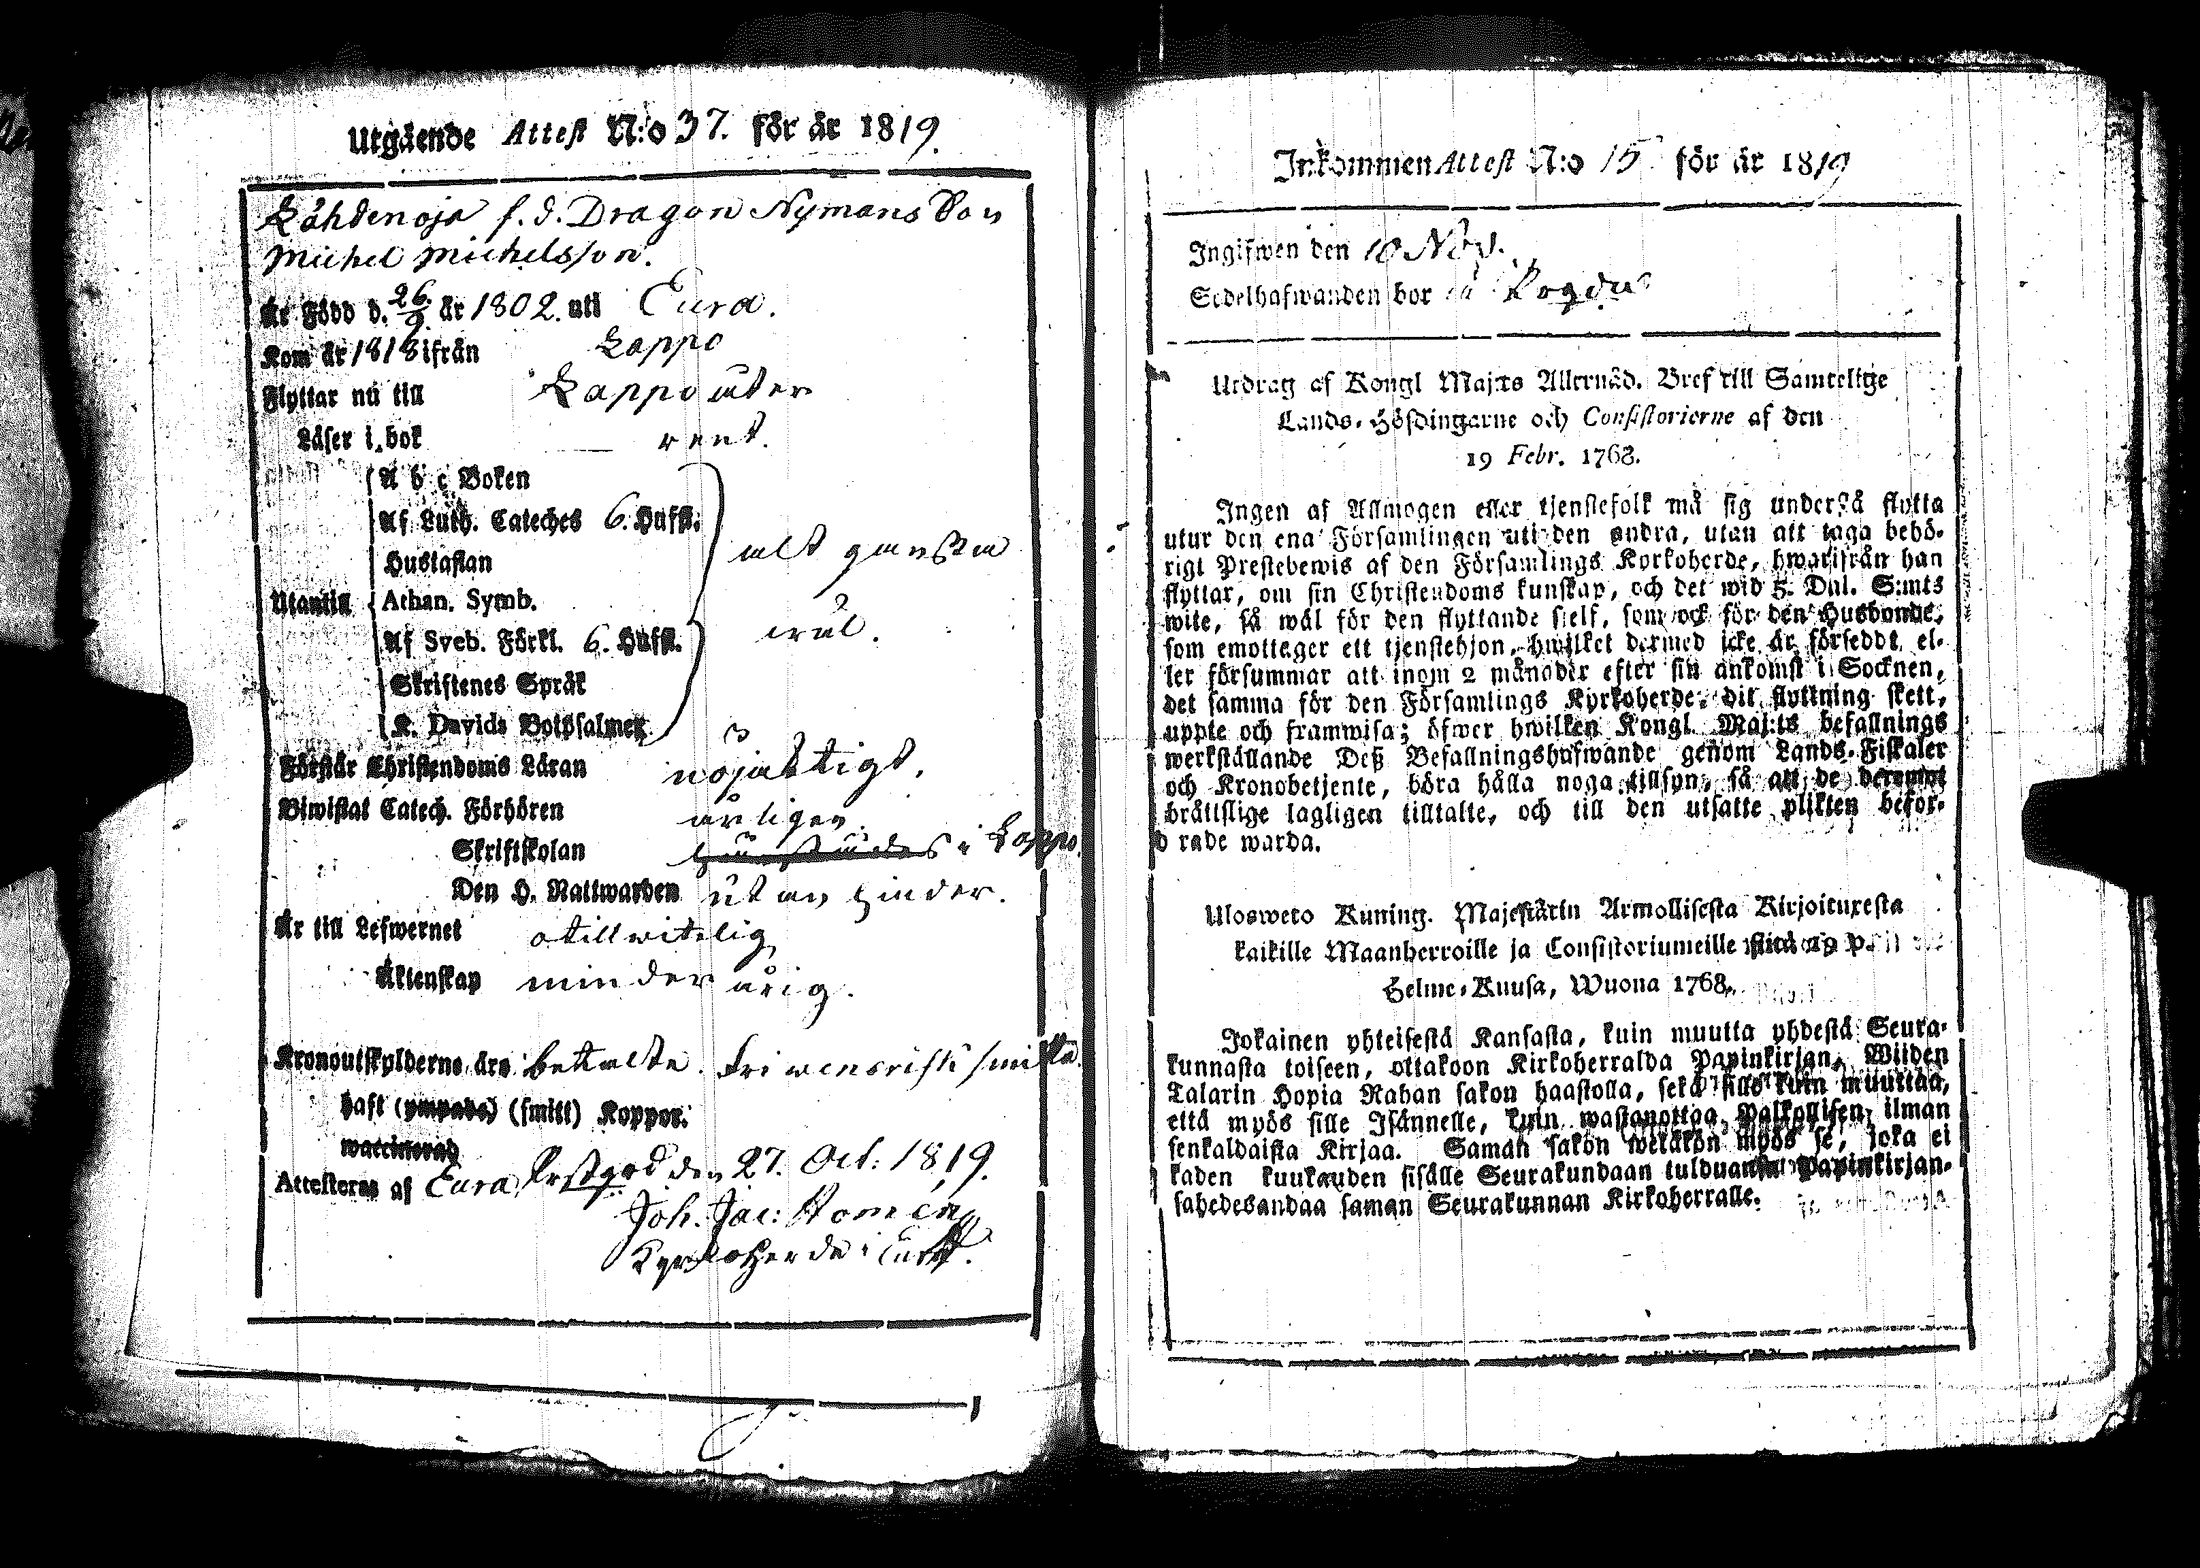 Utgående Attest N:o 37. för år 1819.
Lähdenoja f. d. Dragon Nymans Son
Michel Michelsson.
Är Född d. 26/9. år 1802. uti Eura.
Kom år 1818 ifrån Lappo
Flyttar nu till Lappo åter
Läser i bok rent.
A b c Boken
Af Luth. Cateches 6. Hufst.
Hustaflan
Utantill Athan. Symb.
Af Sveb. Förkl. 6. Hufst.
Skriftenes Språk
K. Davids Botpsalmer
alt ganska
wäl.
Förstår Christendoms Läran nöjaktigt.
Biwistat Catech. Förhören årligen.
Skriftskolan i Lappo.
Den H. Nattwarden utan hinder.
Är till Lefwernet otillwitelig
Äktenskap minderårig.
Kronoutskylderne äro betalte.
haft (ympade) (smitt) Koppor.
waccinerad
Attesteras af Eura Prstgrd den 27. Oct: 1819.
Joh. Jac:
Kyrkoherde i
Inkommen Attest N:o 15 för år 1819
Ingifwen den 10 Nov.
Sedelhafwanden bor
Utdrag af Kongl Maj:ts Allernåd. Bref till Samtelige
Lands-Höfdingarne och Consistorierne af den
19 Febr. 1768.
Ingen af Allmogen eller tjenstefolk må sig understå flytta
utur den ena Församlingen uti den andra, utan att taga behö-
rigt Prestebewis af den Församlings Kyrkoherde, hwarifrån han
flyttar, om sin Christendoms kunskap, och det wid 5. Dal. S:mts
wite, så wäl för den flyttande sielf, som ock för den Husbonde,
som emottager ett tjenstehjon, hwilket dermed icke är försedt, el-
ler försummar att inom 2 månader efter sin ankomst i Socknen,
det samma för den Församlings Kyrkoherde, dit flyttning skett,
uppte och framwisa; öfwer hwilken Kongl. Maj:ts befallnings
werkställande Deß Befallningshafwande genom Lands-Fiskaler
och Kronobetjente, böra hålla noga tillsyn, så att de deremot
bråttslige lagligen tilltalte, och till den utsatte plikten befor-
d rade warda.
Ulosweto Kuning. Majestätin Armollisesta Kirjoituxesta
kaikille Maanherroille ja Consistoriumeille siitä 19 p.
Helme-Kuusa, Wuona 1768.
Jokainen yhteisestä Kansasta, kuin muutta yhdestä Seura-
kunnasta toiseen, ottakoon Kirkoherralda Papinkirjan, Wiiden
Talarin Hopia Rahan sakon haastolla, sekä sille kuin muuttaa,
että myös sille Isännelle, kuin wastanottaa Palkollisen, ilman
senkaldaista Kirjaa. Saman sakon wetäkön myös se, joka ei
kaden kuukauden sisälle Seurakundaan tulduansa Papinkirjan-
sahedesandaa saman Seurakunnan Kirkoherralle.